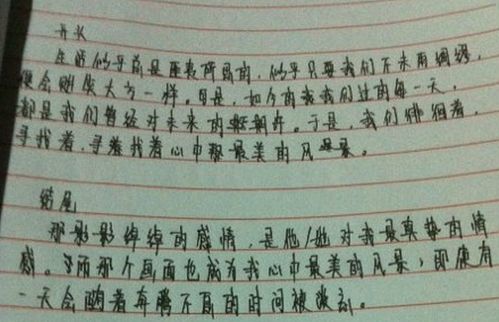 开头
生活似乎前是 ，似乎只要我们不未雨绸缪，
便会 一样。可是，如今的我我们过的每一天，
都是我们曾经对未来的 期许。于是，我们徘徊着，
寻找着，寻着找着心中 最美的风景。
结尾
那影影绰绰的感情，是他/她对我最真挚的情
感。 而那个画面也成为我心中最美的风景，即使有
一天会随着奔腾不息的时间被